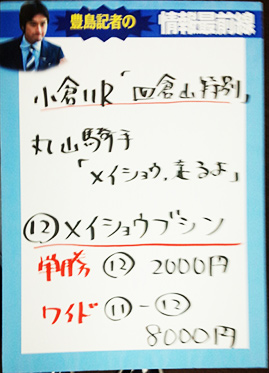 豊島記者の
情報最前線
小倉11R「四倉山特別」
丸山騎手
「メイショウ、走るよ」
⑫メイショウブシン
単勝 ⑫ 2000円
ワイド ⑪-⑫
8000円